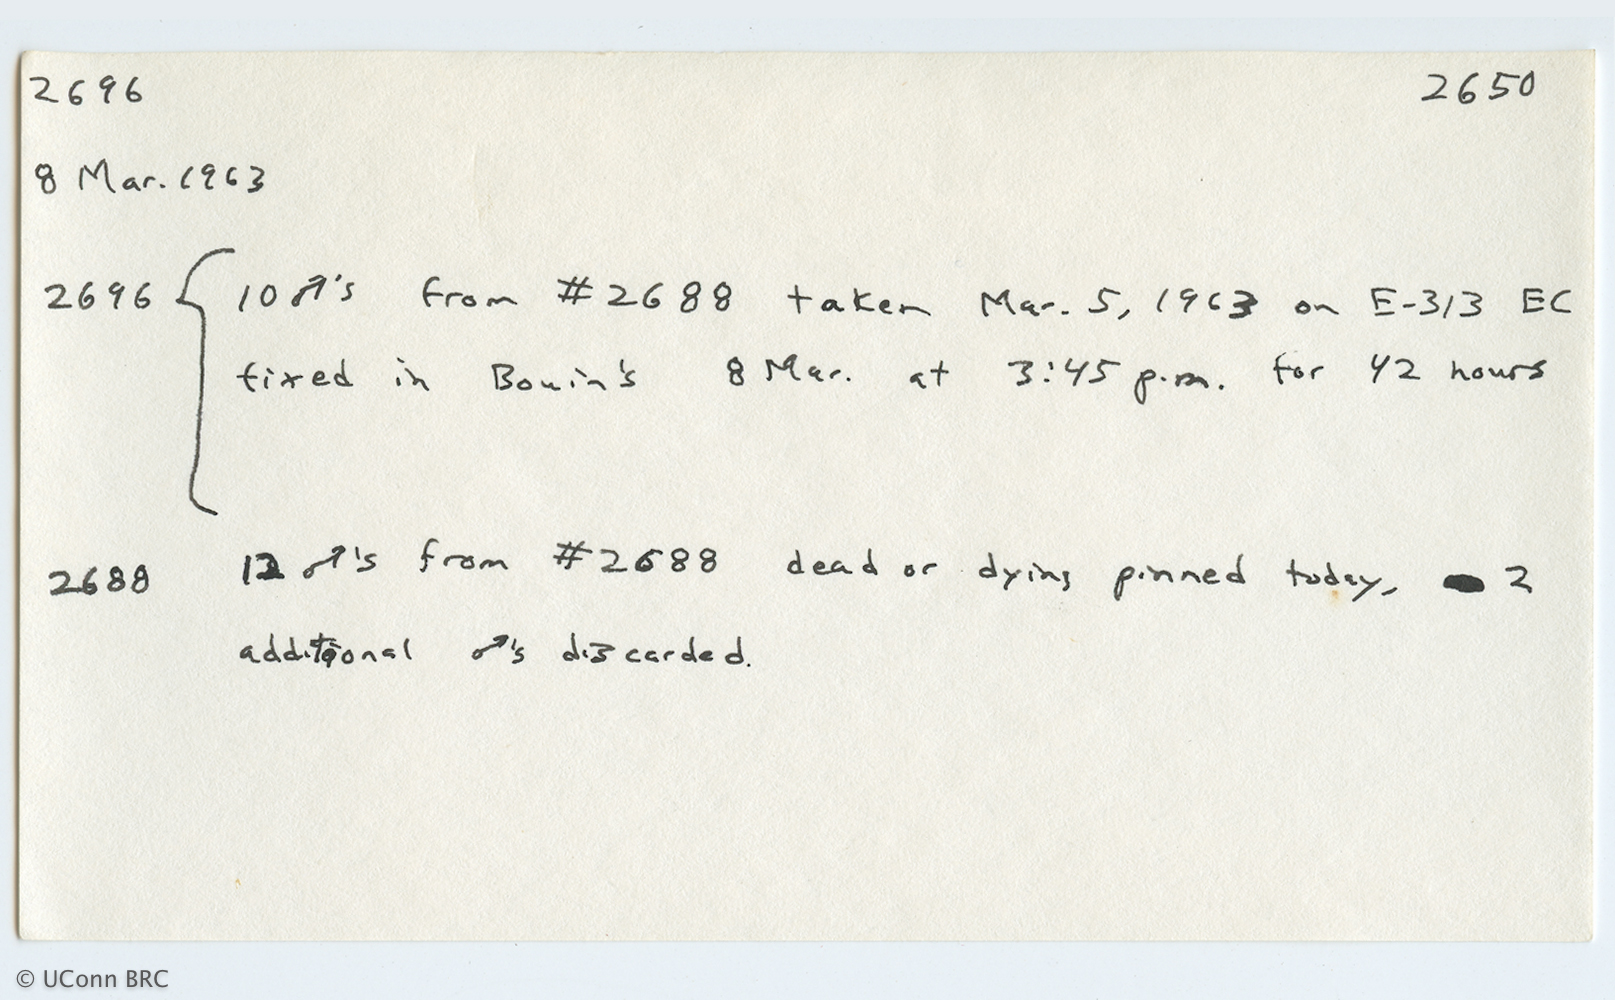 2696 2650
8 Mar. 1963
2696 { 10 ♂'s from #2688 taken Mar. 5, 1963 on E-313 EC
fixed in Bouin's 8 Mar. at 3:45 p.m. for 42 hours
2688 12 ♂'s from #2688 dead or dying pinned today, 2
additional ♂'s discarded.
© UConn BRC